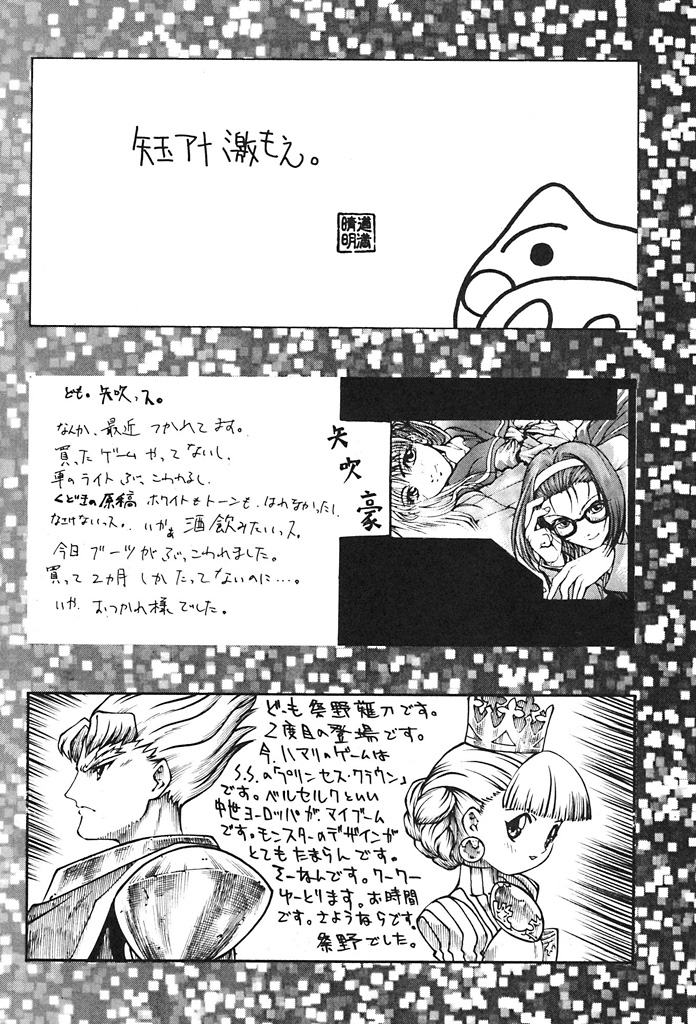 短アナ激もえ。
道満
晴明
ども。矢吹っス。
なんか、最近 つかれてます。
買ったゲーム やってないし、
車のライト ぶっこわれるし、
くど王の原稿 ホワイトもトーンも、はれなかったし、
なさけないっス。いやぁ 酒飲みたいっス。
今日 ブーツが ぶっこわれました。
買って 2ヵ月 しかたってないのに…。
いや おつかれ様でした。
矢吹豪
ども 祭野薙刀です。
2度目の登場です。
今、ハマりのゲームは
S.S.の「プリンセス・クラウン」
です。ベルセルクといい
中世ヨーロッパが、マイブーム
です。モンスターのデザインが
とてもたまらんです。
そーなんです。クークー
ゆーとります。お時間
です。さようならです。
祭野でした。